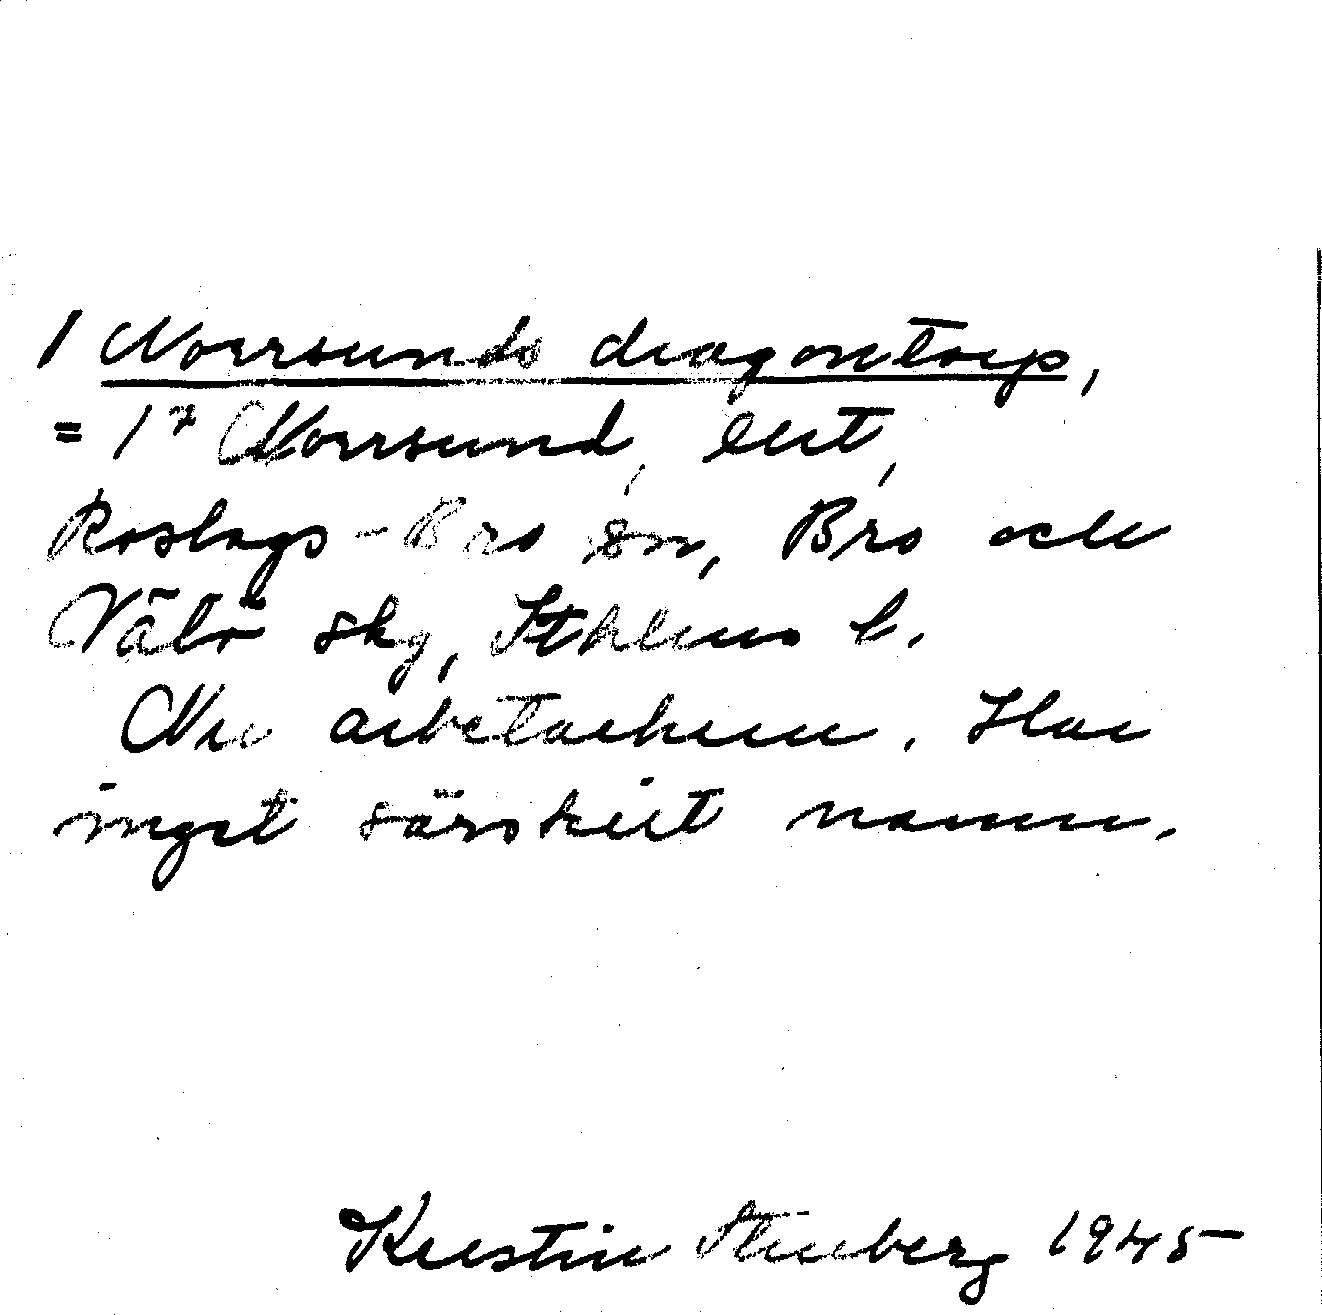 / Norrsunds dragontorp,
= 1² Norrsund, litt,
Roslags-Bro sn, Bro och
Vätö skg, Sthlms l.
Nu arbetarhem. Har
inget särskilt namn.
Kerstin Stenberg 1945